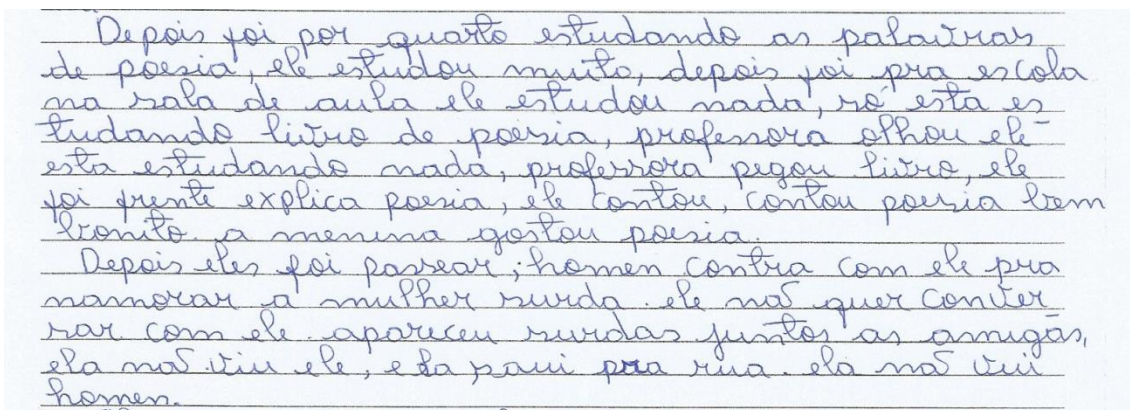 Depois foi por quarto estudando as palavras
de poesia, ele estudou muito, depois foi pra escola
na sala de aula ele estudou nada, só esta es
tudando livro de poesia, professora olhou ele
esta estudando nada, professora pegou livro, ele
foi frente explica poesia, ele contou, contou poesia bem
bonito. a menina gostou poesia.
Depois eles foi passear, homen contra com ele pra
namorar a mulher surda. ele não quer conver
sar com ele. apareceu surdas juntos as amigas,
ela não viu ele, ela saui pra rua. ela não viu
homen.